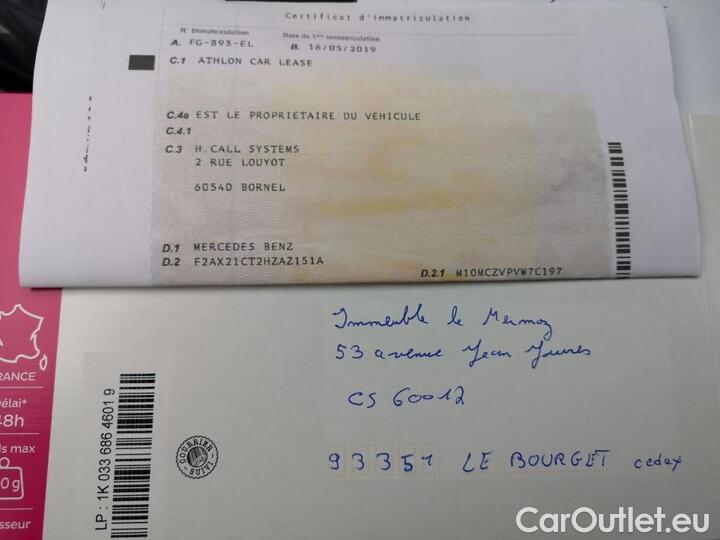 Certificat d'immatriculation
N° Immatriculation
Date de 1ère immatriculation
A. FG-893-EL
B. 16/05/2019
C.1 ATHLON CAR LEASE
C.4a EST LE PROPRIÉTAIRE DU VÉHICULE
C.4.1
C.3 H.CALL SYSTEMS
2 RUE LOUYOT
60540 BORNEL
D.1 MERCEDES BENZ
D.2 F2AX21CT2HZAZ151A
D.2.1 M10MCZVPVW7C197
Immeuble le Mermoz
53 avenue Jean Jaures
CS 60012
93351 LE BOURGET cedex
RANCE
élai*
48h
ds max
0g
sseur
LP : 1K 033 686 4601 9
COURRIER SUIVI
CarOutlet.eu